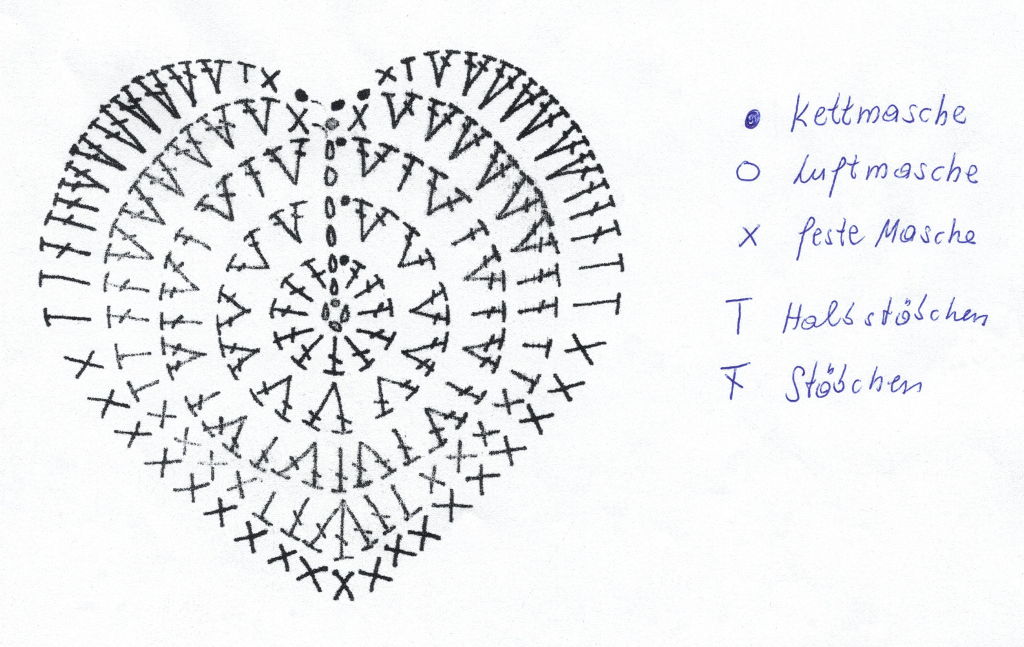 Kettmasche
Luftmasche
feste Masche
Halbstäbchen
Stäbchen